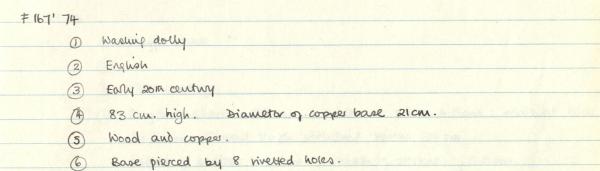 F 167' 74
① Washing dolly
② English
③ Early 20th century
④ 83 cm. high. Diameter of copper base 21cm.
⑤ Wood and copper.
⑥ Base pierced by 8 rivetted holes.